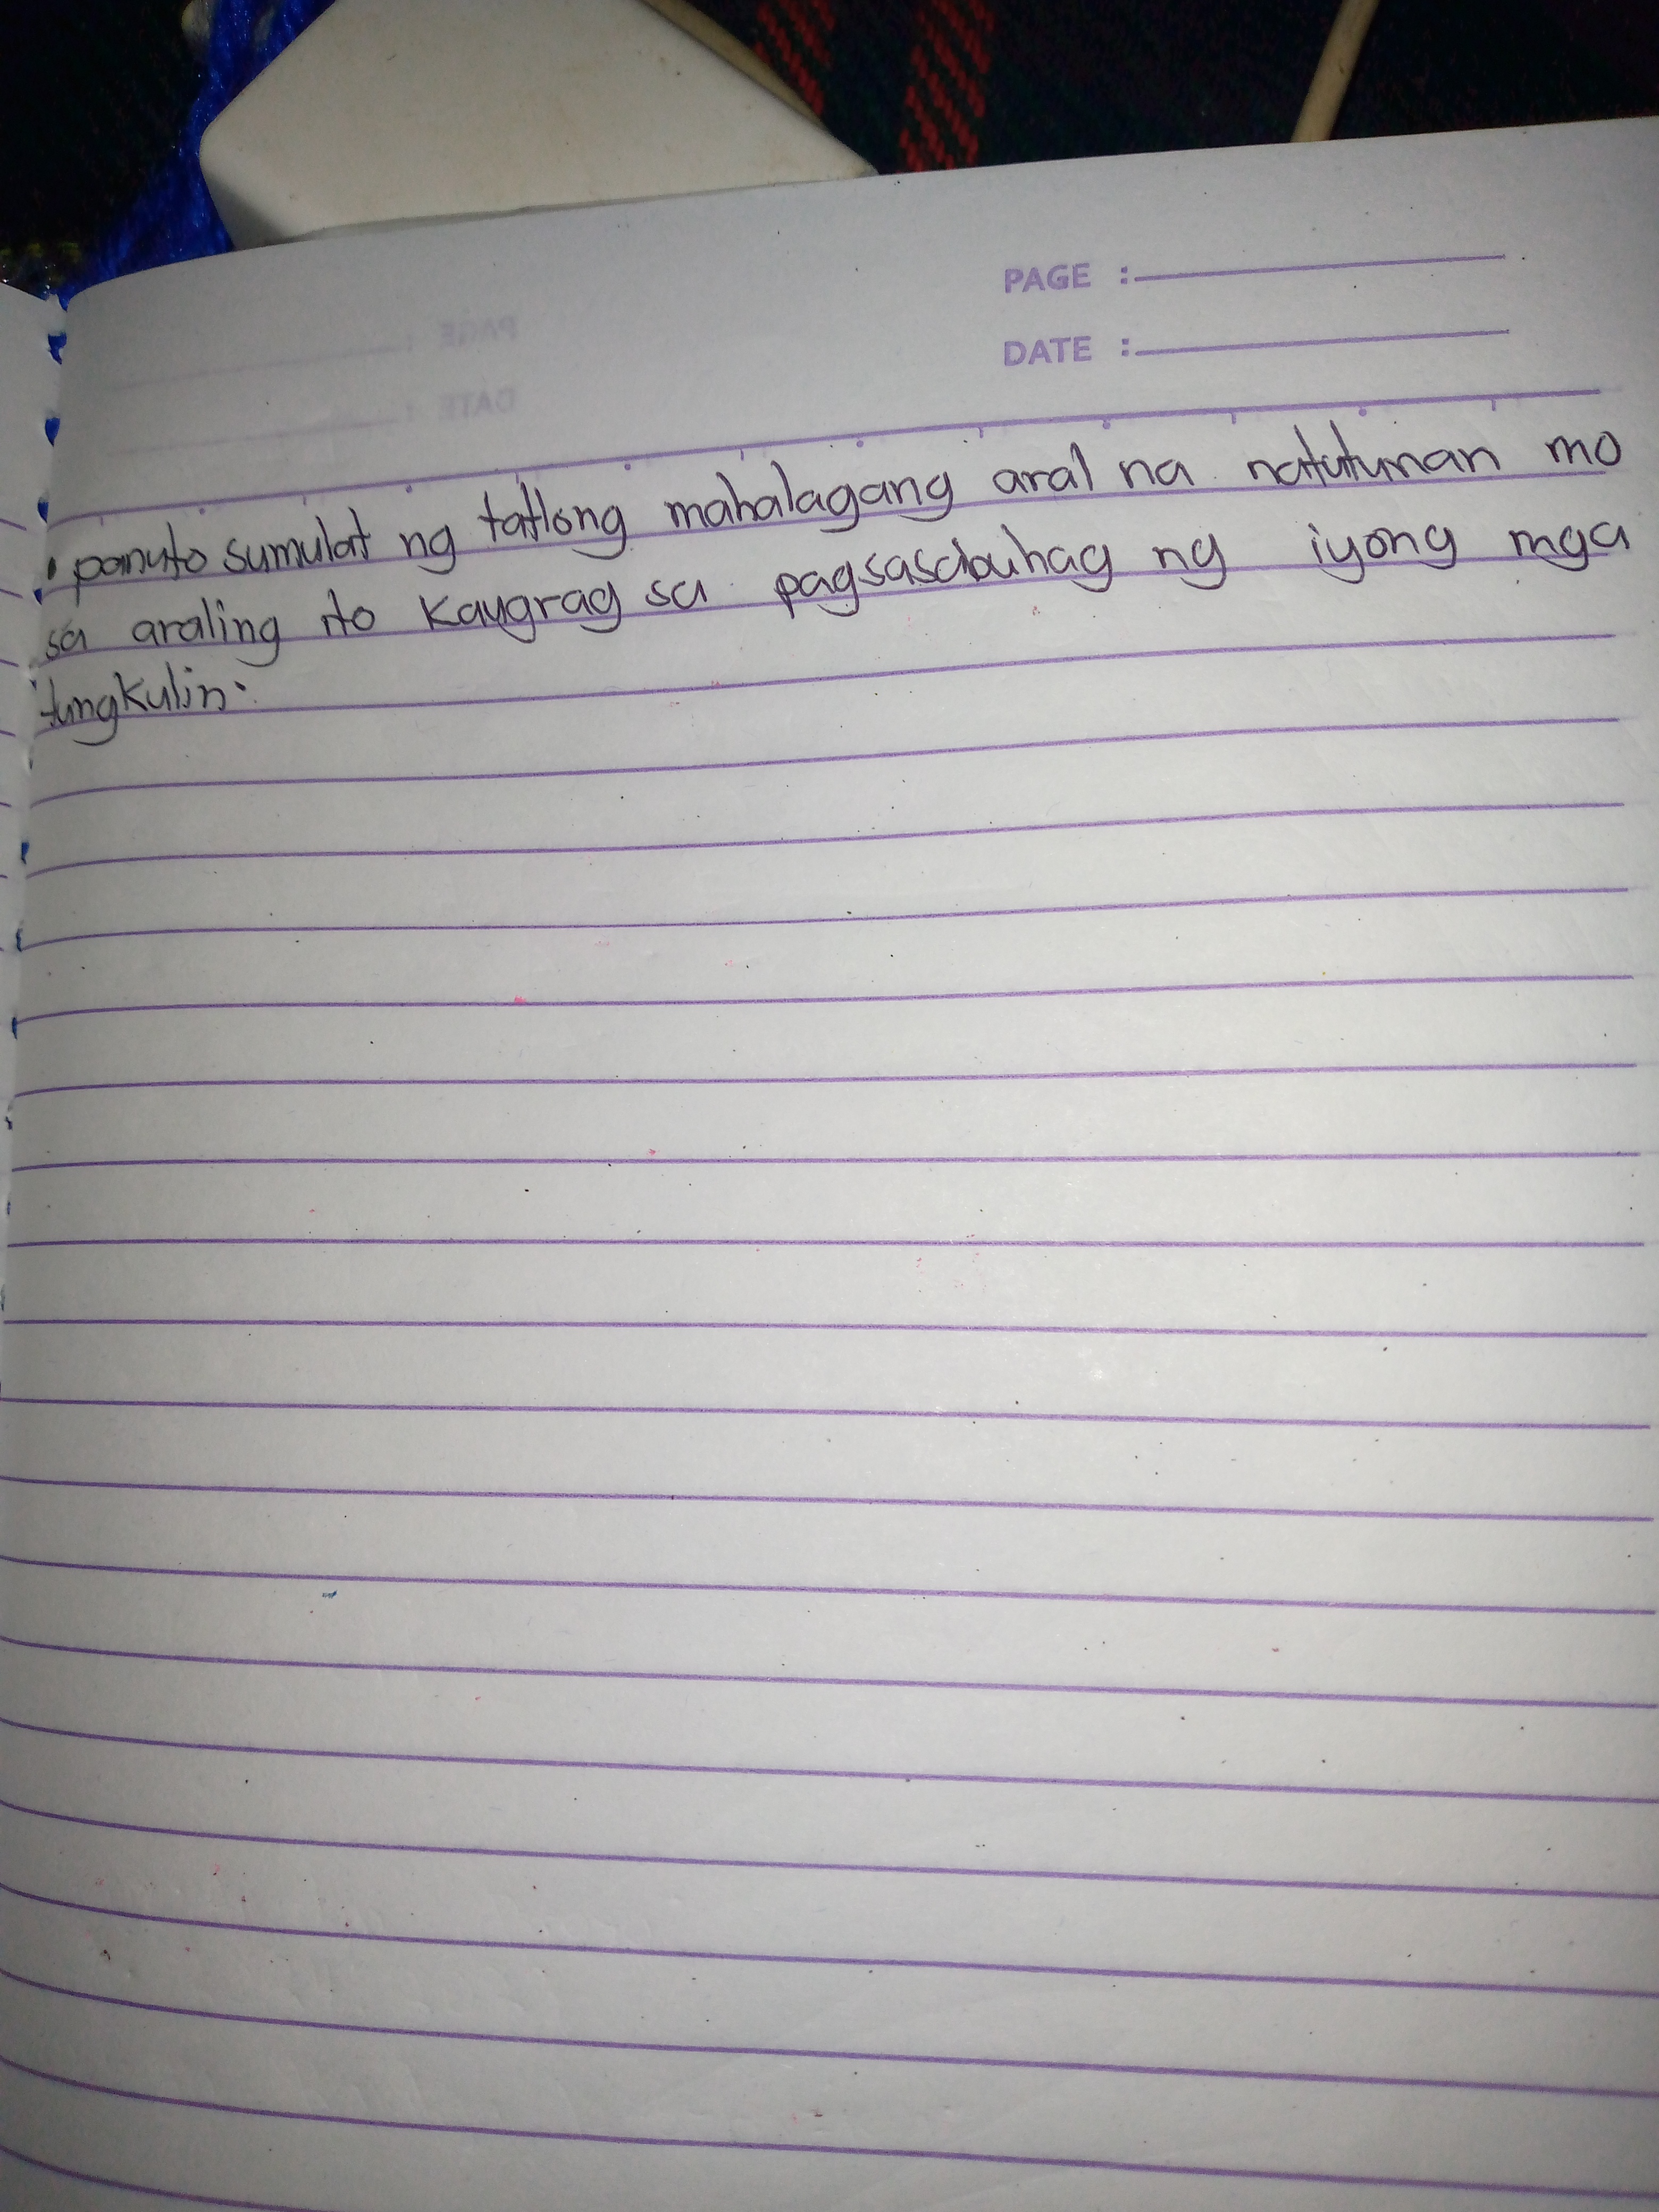 PAGE :
DATE :
• panuto sumulat ng tatlong mahalagang aral na natutunan mo
sa araling ito Kaugrag sa pagsasabuhag ng iyong mga
tungkulin.